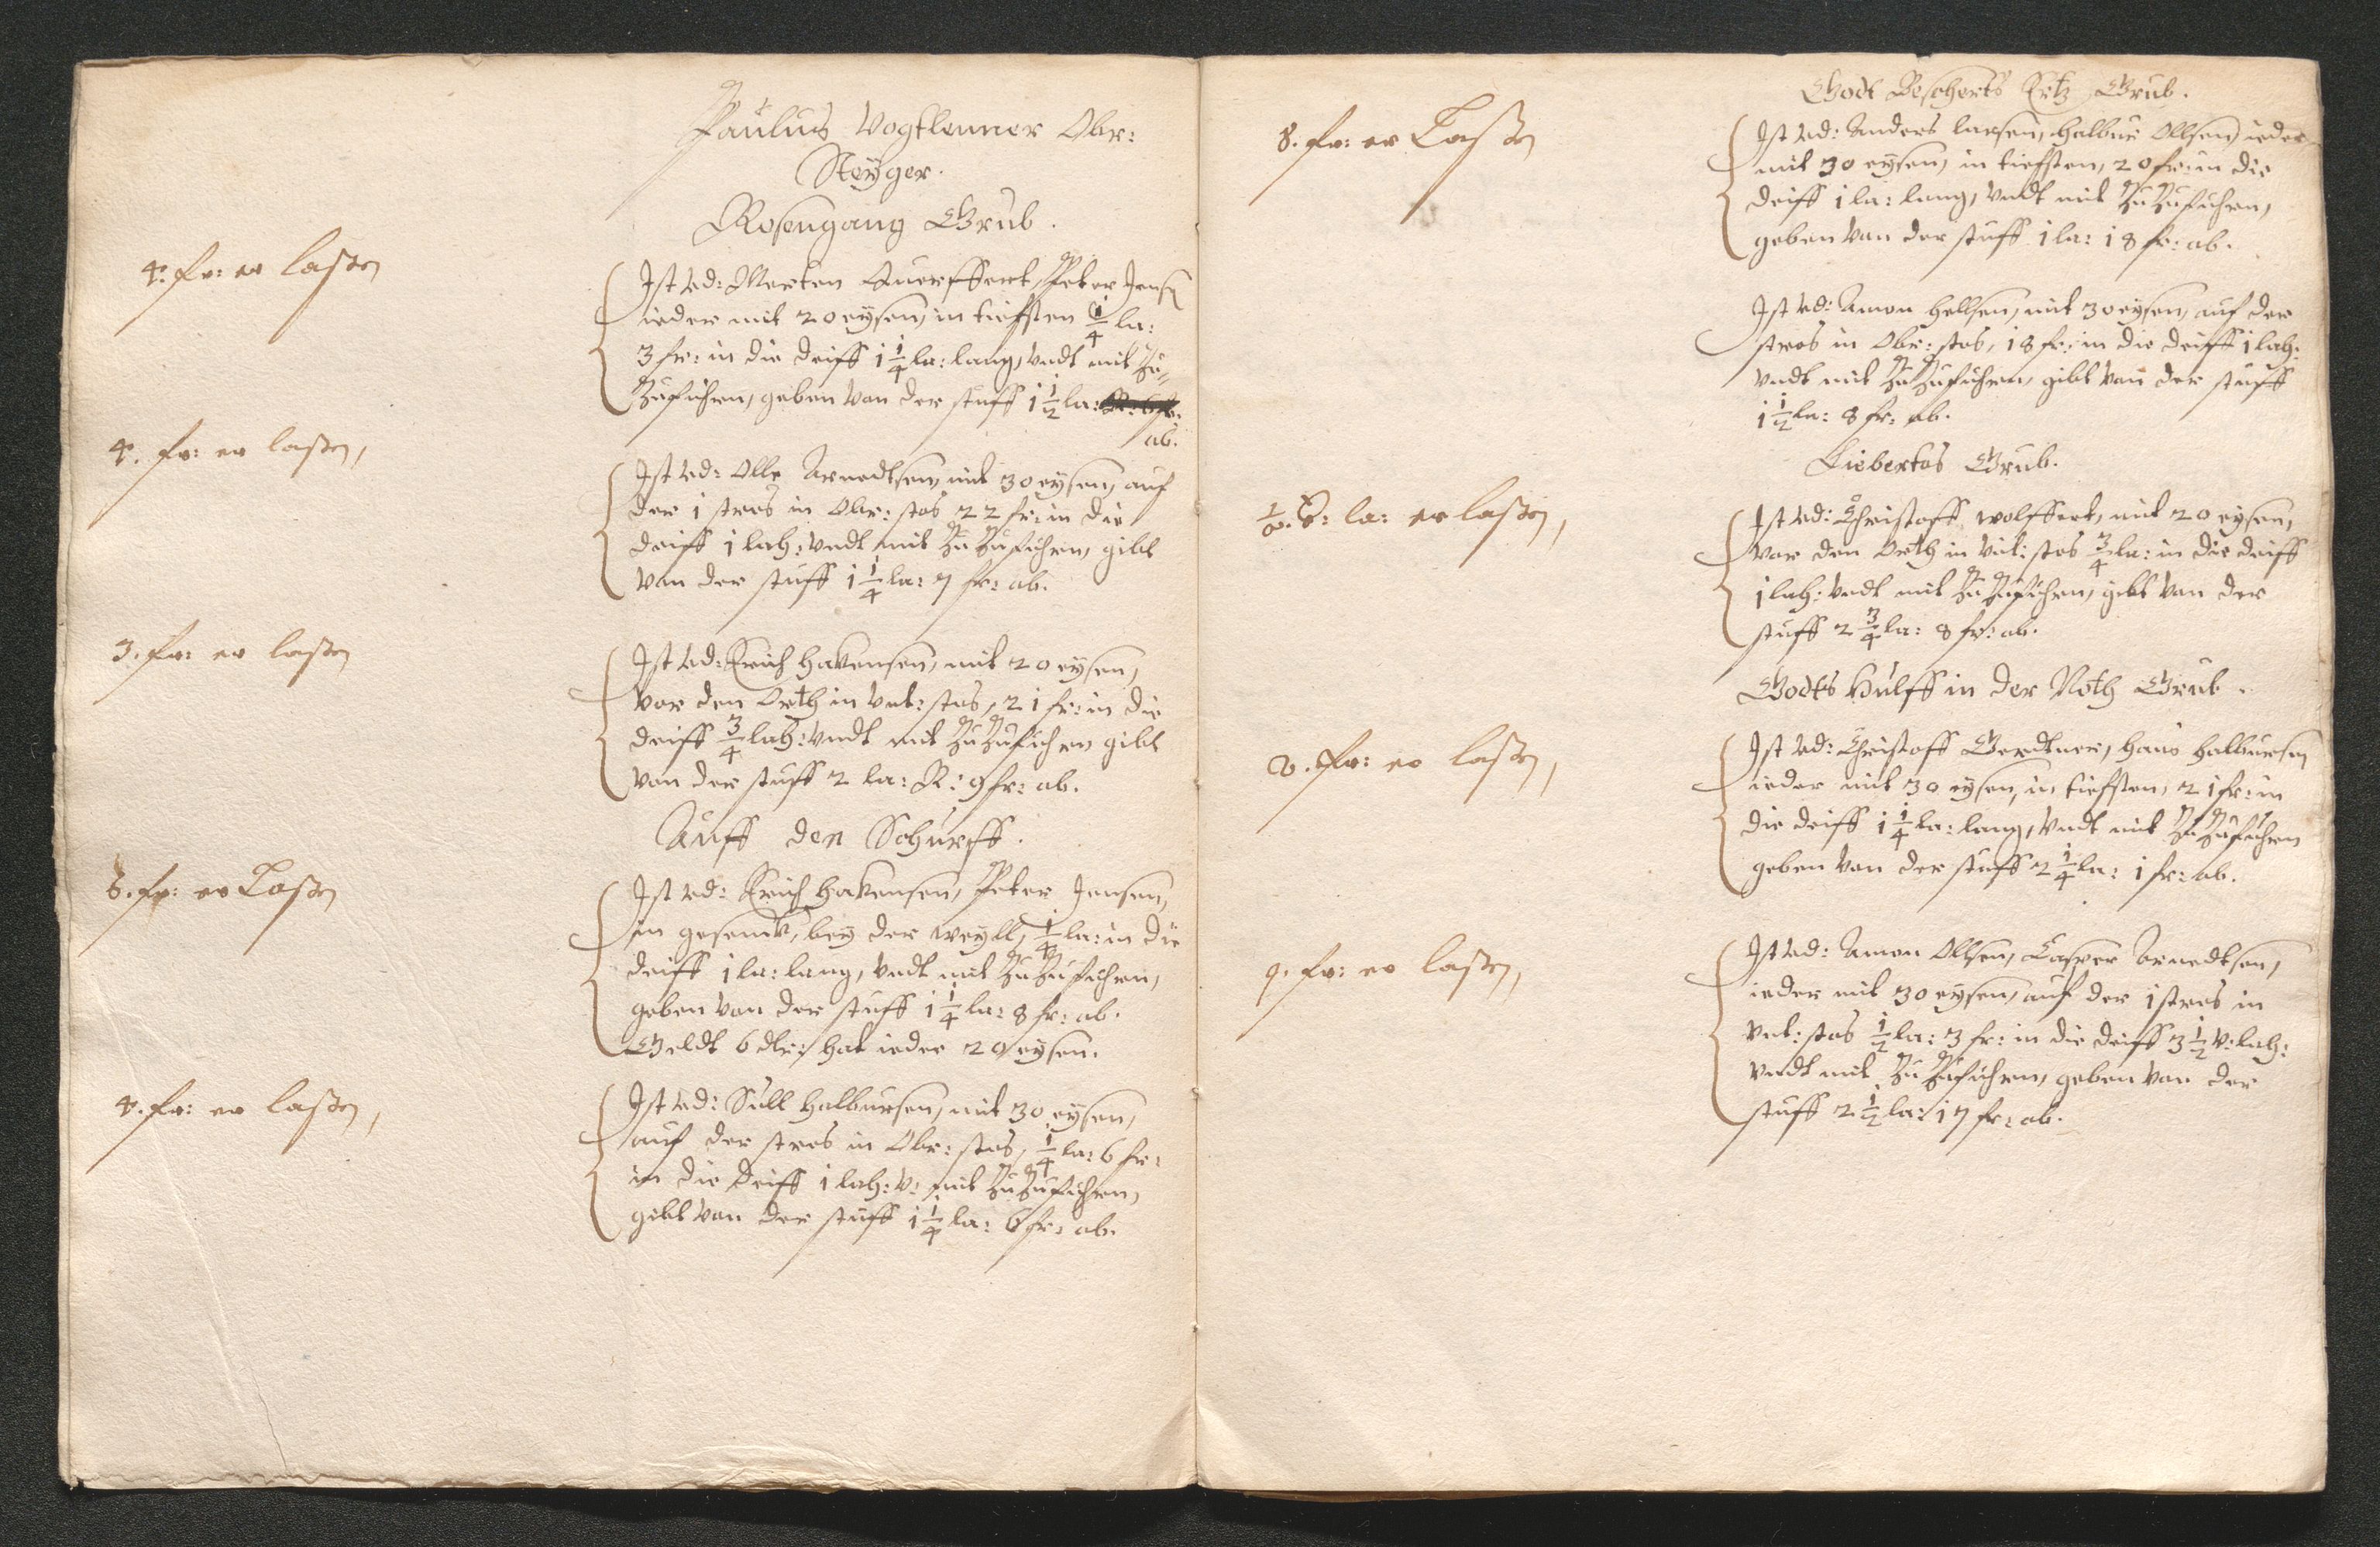 Paulus Vogtlenner Obr:
Steÿger.
Rosengang Grub.
4. fr: er lassen
Ist vd: Merten Querffert, Peter Jens
ieder mit 20 eÿsen, in tieffsten 1/4 la:
3 fr: in die deiff 1 1/4 la: lang, vndt mit Zu=
Zufuhren, geben von der stuff 1 1/2 la:
ab.
4. fr: er lassen,
Ist vd: Olle Arnedtsen, mit 30 eÿsen, auf
der 1 stros in Obr: stos 22 fr: in die
deiff 1 lah: vndt mit Zu Zufuhren, gibt
von der stuff 1 1/4 la: 7 fr: ab.
3. fr: er lassen
Ist vd: Erich Hakensen, mit 20 eÿsen,
vor den Orth in vnt: stos, 21 fr: in die
deiff 3/4 lah: vndt mit Zu Zufuhren gibt
von der stuff 2 la: R: 9 fr: ab.
Auff den Schurff.
6. fr: er Lassen
Ist vd: Erich Hakensen, Peter Jensen,
in gesenk, beÿ der weÿll, 1/4 la: in die
deiff 1 la: lang, vndt mit Zu Zufuhren,
geben von der stuff 1 1/4 la: 8 fr: ab.
Geldt 6 dlr: hat ieder 20 eÿsen.
4. fr: er lassen,
Ist vd: Sull Halbursen, mit 30 eÿsen,
auf der stros in Obr: stos, 1/4 la: 6 fr:
in die deiff 1 lah: v: mit Zu Zufuhren,
gibt von der stuff 1 1/4 la: 6 fr: ab.
Godt Bescherts Ertz Grub.
8. fr: er Lassen
Ist vd: Anders Larsen, Halbur Ollsen, ieder
mit 30 eÿsen, in tieffsten, 20 fr: in die
deiff 1 la: lang, vndt mit Zu Zufuhren,
geben von der stuff 1 la: 18 fr: ab.
Ist vd: Amon Hellsen, mit 30 eÿsen, auf der
stros in Obr: stos, 18 fr: in die deiff 1 lah:
vndt mit Zu Zufuhren, gibt von der stuff
1 1/2 la: 8 fr: ab.
Liebertas Grub.
la: er lassen,
Ist vd: Christoff Wolffert, mit 20 eÿsen,
vor den Orth in vnt: stos 3/4 la: in die deiff
1 lah: vndt mit Zu Zufuhren, gibt von der
stuff 2 3/4 la: 8 fr: ab.
Godts Hulff in der Noth Grub.
2. fr: er lassen,
Ist vd: Christoff Gerdtner, Hans Halbursen
ieder mit 30 eÿsen, in tieffsten, 21 fr: in
die deiff 1 1/4 la: lang, vndt mit Zu Zufuhren
geben von der stuff 2 1/4 la: 1 fr: ab.
9. fr: er lassen,
Ist vd: Amon Ollsen, Casper Arnedtsen,
ieder mit 30 eÿsen, auf der 1 stros in
vnt: stos 1/2 la: 3 fr: in die deiff 3 1/2 v: lah:
vndt mit Zu Zufuhren, geben von der
stuff 2 1/2 la: 17 fr: ab.